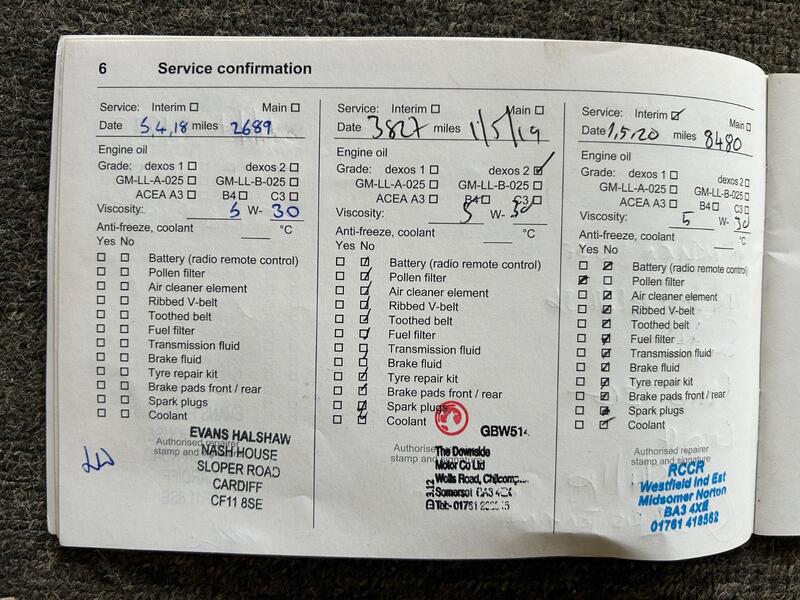 6 Service confirmation
Service: Interim Main
Date 5,4,18 miles 2689
Engine oil
Grade: dexos 1 dexos 2
GM-LL-A-025 GM-LL-B-025
ACEA A3 B4 C3
Viscosity: 5 W- 30
Anti-freeze, coolant °C
Yes No
Battery (radio remote control)
Pollen filter
Air cleaner element
Ribbed V-belt
Toothed belt
Fuel filter
Transmission fluid
Brake fluid
Tyre repair kit
Brake pads front / rear
Spark plugs
Coolant
Authorised repairer
stamp and
EVANS HALSHAW
NASH HOUSE
SLOPER ROAD
CARDIFF
CF11 8SE
Service: Interim Main
Date 3827 miles 1/5/19
Engine oil
Grade: dexos 1 dexos 2
GM-LL-A-025 GM-LL-B-025
ACEA A3 B4 C3
Viscosity: 5 W- 30
Anti-freeze, coolant °C
Yes No
Battery (radio remote control)
Pollen filter
Air cleaner element
Ribbed V-belt
Toothed belt
Fuel filter
Transmission fluid
Brake fluid
Tyre repair kit
Brake pads front / rear
Spark plugs
Coolant
GBW514
Authorise
stamp and signature
The Downside
Motor Co Ltd
Wells Road,
Somerset BA3
Tel:- 01761
Service: Interim Main
Date 1,5,20 miles 8480
Engine oil
Grade: dexos 1 dexos 2
GM-LL-A-025 GM-LL-B-025
ACEA A3 B4 C3
Viscosity: 5 W- 30
Anti-freeze, coolant °C
Yes No
Battery (radio remote control)
Pollen filter
Air cleaner element
Ribbed V-belt
Toothed belt
Fuel filter
Transmission fluid
Brake fluid
Tyre repair kit
Brake pads front / rear
Spark plugs
Coolant
Authorised repairer
stamp and signature
RCCR
Westfield Ind Est
Midsomer Norton
BA3 4XE
01761 418562